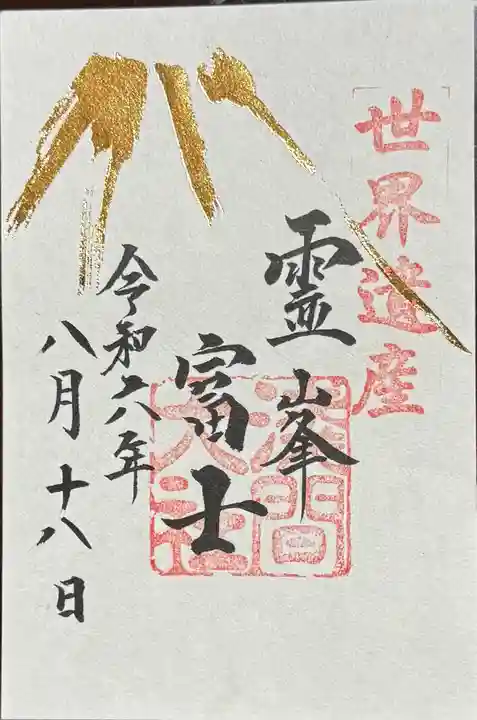 世界遺産
霊峯
富士
淺間
大社
令和六年
八月十八日